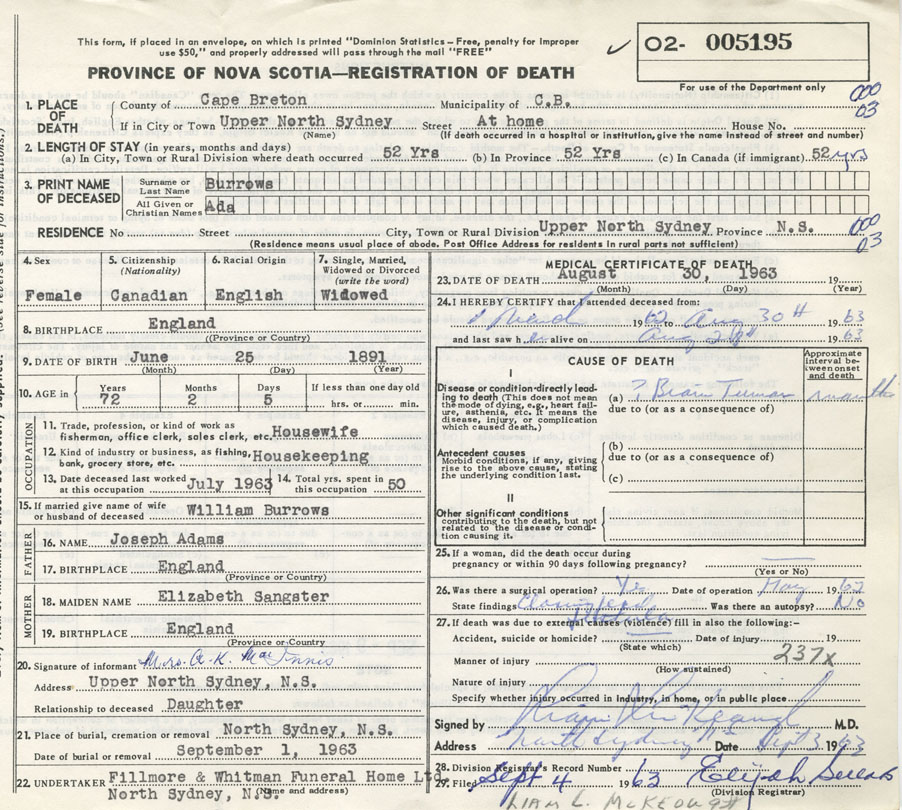 This form, if placed in an envelope, on which is printed "Dominion Statistics - Free, penalty for improper
use $50," and properly addressed will pass through the mail "FREE"
✓ 02- 005195
For use of the Department only
PROVINCE OF NOVA SCOTIA—REGISTRATION OF DEATH
000
03
1. PLACE OF DEATH County of Cape Breton Municipality of C.B.
If in City or Town Upper North Sydney Street At home House No.
(Name) (If death occurred in a hospital or institution, give the name instead of street and number)
2. LENGTH OF STAY (in years, months and days)
(a) In City, Town or Rural Division where death occurred 52 Yrs (b) In Province 52 Yrs (c) In Canada (if immigrant) 52 yrs
3. PRINT NAME OF DECEASED Surname or Last Name Burrows
All Given or Christian Names Ada
RESIDENCE No Street City, Town or Rural Division Upper North Sydney Province N.S.
000
03
(Residence means usual place of abode. Post Office Address for residents in rural parts not sufficient)
4. Sex Female
5. Citizenship (Nationality) Canadian
6. Racial Origin English
7. Single, Married, Widowed or Divorced (write the word) Widowed
8. BIRTHPLACE England
(Province or Country)
9. DATE OF BIRTH June 25 1891
(Month) (Day) (Year)
10. AGE in Years 72 Months 2 Days 5 If less than one day old hrs. or min.
OCCUPATION
11. Trade, profession, or kind of work as fisherman, office clerk, sales clerk, etc. Housewife
12. Kind of industry or business, as fishing, bank, grocery store, etc. Housekeeping
13. Date deceased last worked at this occupation July 1963
14. Total yrs. spent in this occupation 50
15. If married give name of wife or husband of deceased William Burrows
FATHER
16. NAME Joseph Adams
17. BIRTHPLACE England
(Province or Country)
MOTHER
18. MAIDEN NAME Elizabeth Sangster
19. BIRTHPLACE England
(Province or Country)
20. Signature of informant Mrs. A. K. MacInnis
Address Upper North Sydney, N.S.
Relationship to deceased Daughter
21. Place of burial, cremation or removal North Sydney, N.S.
Date of burial September 1, 1963
22. UNDERTAKER Fillmore & Whitman Funeral Home Ltd
North Sydney, N.S.
(Name and address)
MEDICAL CERTIFICATE OF DEATH
23. DATE OF DEATH August 30, 1963 19
(Month) (Day) (Year)
24. I HEREBY CERTIFY that I attended deceased from:
1962 to Aug 30th 1963
and last saw her alive on Aug 1963
CAUSE OF DEATH
Approximate interval between onset and death
I
Disease or condition directly leading to death (This does not mean the mode of dying, e.g., heart failure, asthenia, etc. It means the disease, injury, or complication which caused death.)
(a) ? Brain Tumor months
due to (or as a consequence of)
Antecedent causes
Morbid conditions, if any, giving rise to the above cause, stating the underlying condition last.
(b)
due to (or as a consequence of)
(c)
II
Other significant conditions
contributing to the death, but not related to the disease or condition causing it.
25. If a woman, did the death occur during pregnancy or within 90 days following pregnancy?
(Yes or No)
26. Was there a surgical operation? Yes Date of operation May 1962
State findings Was there an autopsy? No
27. If death was due to external causes (violence) fill in also the following:-
Accident, suicide or homicide? Date of injury 19
(State which)
237x
Manner of injury
(How sustained)
Nature of injury
Specify whether injury occurred in industry, in home, or in public place
Signed by M.D.
Address North Sydney Date Sept 3 1963
28. Division Registrar's Record Number
29. Filed Sept 4 1963 Elijah
(Division Registrar)
LIAM L. McKEOUGH